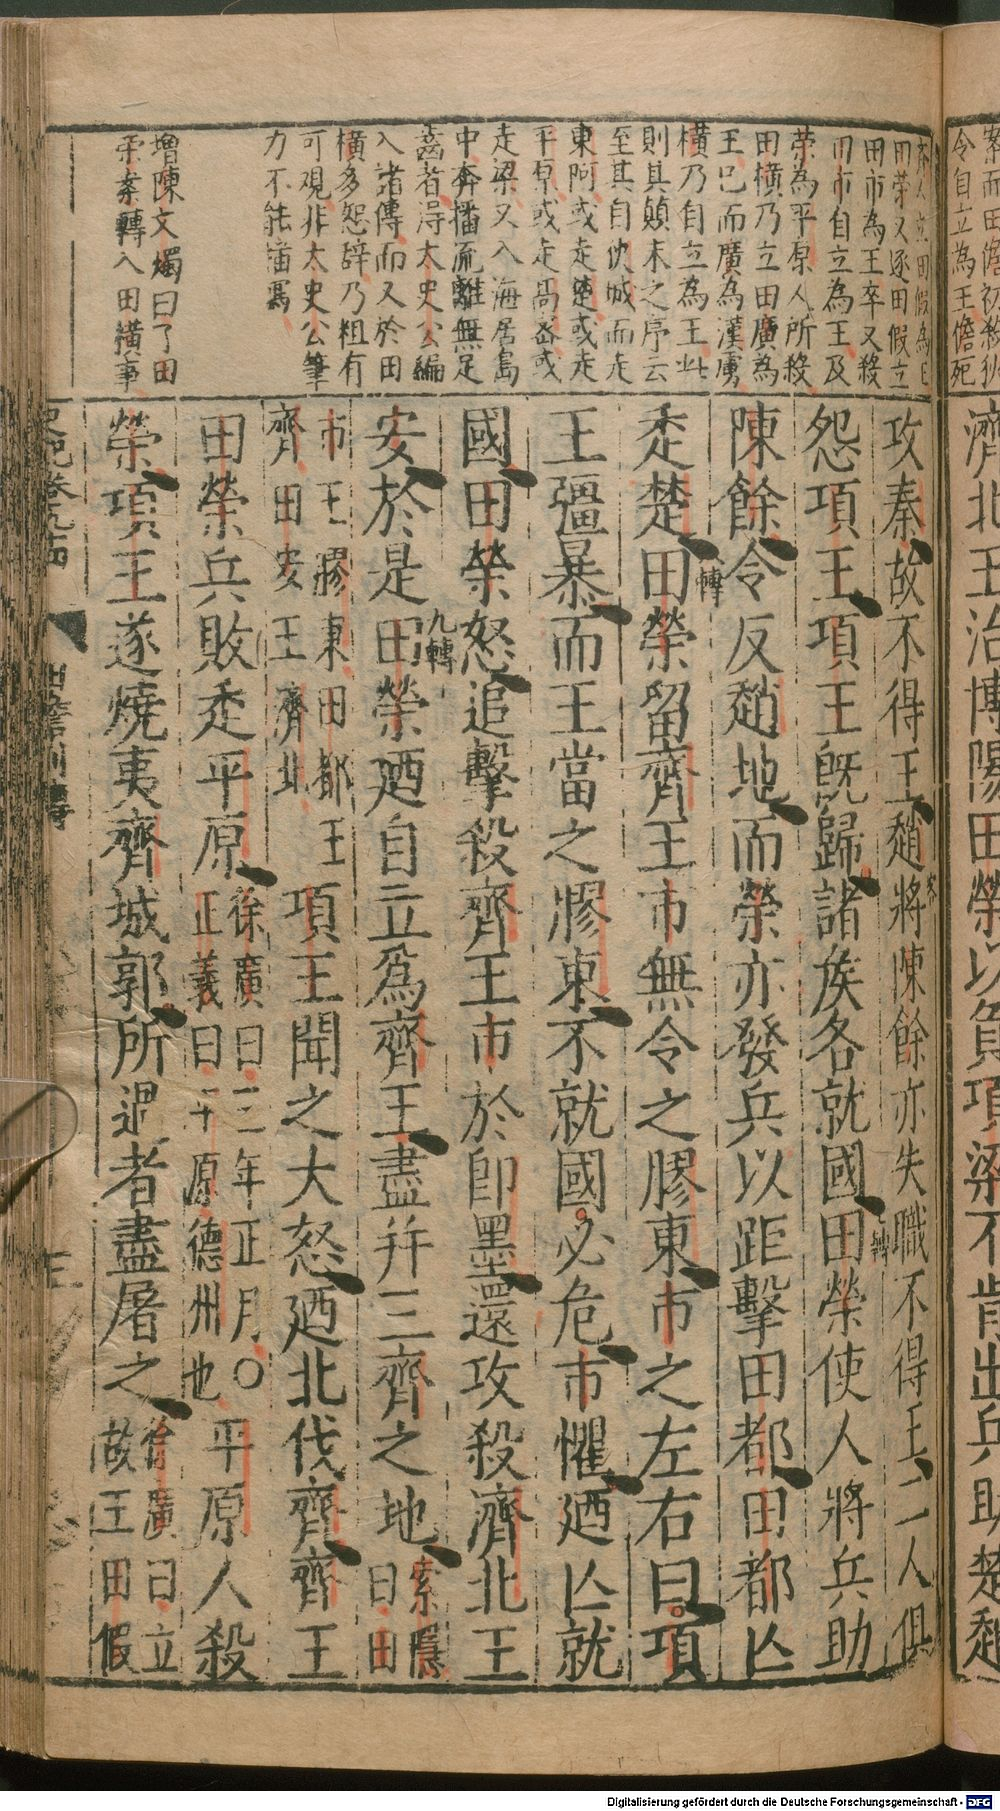 案而田儋初殺狄
令自立為王儋死
齊人立田假為王
田榮又逐田假立
田市為王卒又殺
田市自立為王及
榮為平原人所殺
田橫乃立田廣為
王已而廣為漢虜
橫乃自立為王此
則其顛末之序云
至其自伏城而走
東阿或走楚或走
平原或走高密或
走梁又入海居島
中奔播流離無足
齒者淂太史公編
入諸傳而又於田
橫多怨辭乃粗有
可觀非太史公筆
力不能描寫
增陳文燭曰了田
榮案轉入田橫事
濟北王治博陽田榮以負項梁不肯出兵助楚趙
攻秦故不得王趙將陳餘亦失職不得王二人俱
怨項王項王旣歸諸矦各就國田榮使人將兵助
陳餘令反趙地而榮亦發兵以距擊田都田都亾
走楚田榮留齊王市無令之膠東市之左右曰項
轉
王彊暴而王當之膠東不就國必危市懼廼亾就
國田榮怒追擊殺齊王市於卽墨還攻殺濟北王
安於是田榮廼自立爲齊王盡并三齊之地索隱
曰田
九轉
市王膠東田都王
齊田安王濟北
項王聞之大怒廼北伐齊齊王
田榮兵敗走平原徐廣曰三年正月○
正義曰平原德州也
平原人殺
榮項王遂燒夷齊城郭所過者盡屠之徐廣曰立
故王田假
史記卷九十四
田儋列傳
三
Digitalisierung gefördert durch die Deutsche Forschungsgemeinschaft - DFG